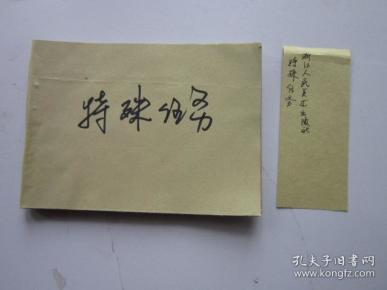 特殊任务
浙江人民美术出版社
特殊任务
孔夫子旧书网
www.kongfz.com